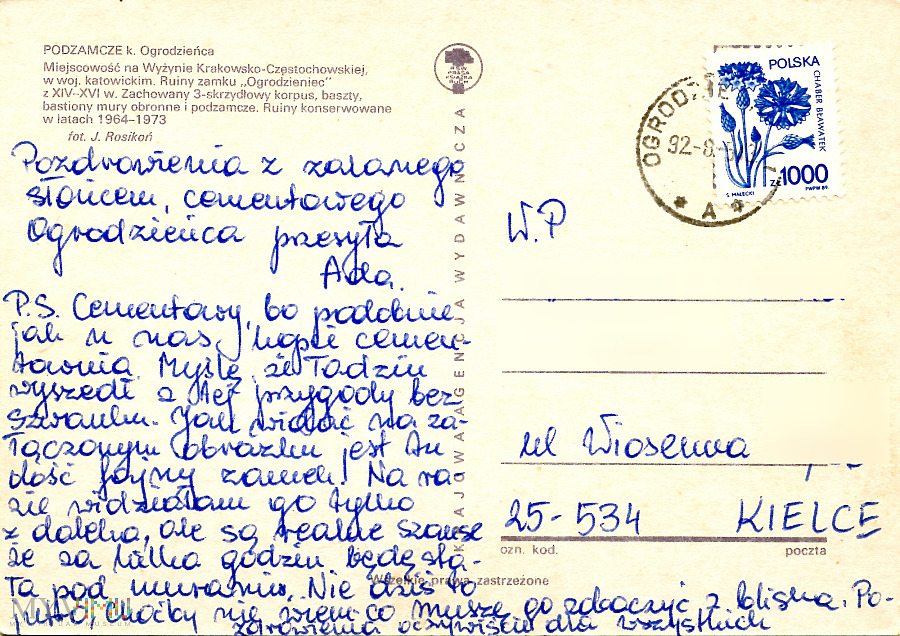 PODZAMCZE k. Ogrodzieńca
Miejscowość na Wyżynie Krakowsko-Częstochowskiej,
w woj. katowickim. Ruiny zamku „Ogrodzieniec”
z XIV-XVI w. Zachowany 3-skrzydłowy korpus, baszty,
bastiony mury obronne i podzamcze. Ruiny konserwowane
w latach 1964-1973
fot. J. Rosikoń
Pozdrowienia z zalanego
słońcem, cementowego
Ogrodzieńca przesyła
Ada.
P.S. Cementowy, bo podobnie
jak u nas, kopci cemen-
townia. Myślę, że Tadziu
wyszedł z tej przygody bez
szwanku. Jak widać na za-
łączonym obrazku jest tu
dość fajny zamek! Na ra-
zie widziałam go tylko
z daleka, ale są realne szanse
że za kilka godzin będę sta-
ła pod murami. Nie dziś to
jutro, choćby nie wiem co muszę go zobaczyć z bliska. Po-
zdrowienia oczywiście dla wszystkich
KRAJOWA AGENCJA WYDAWNICZA
RSW PRASA KSIĄŻKA RUCH
OGRODZIE
92-8
A
POLSKA
CHABER BŁAWATEK
zł 1000
S. MAŁECKI
PWPW 89
W.P
ul Wiosenna
25-534 KIELCE
ozn. kod. poczta
Wszelkie prawa zastrzeżone